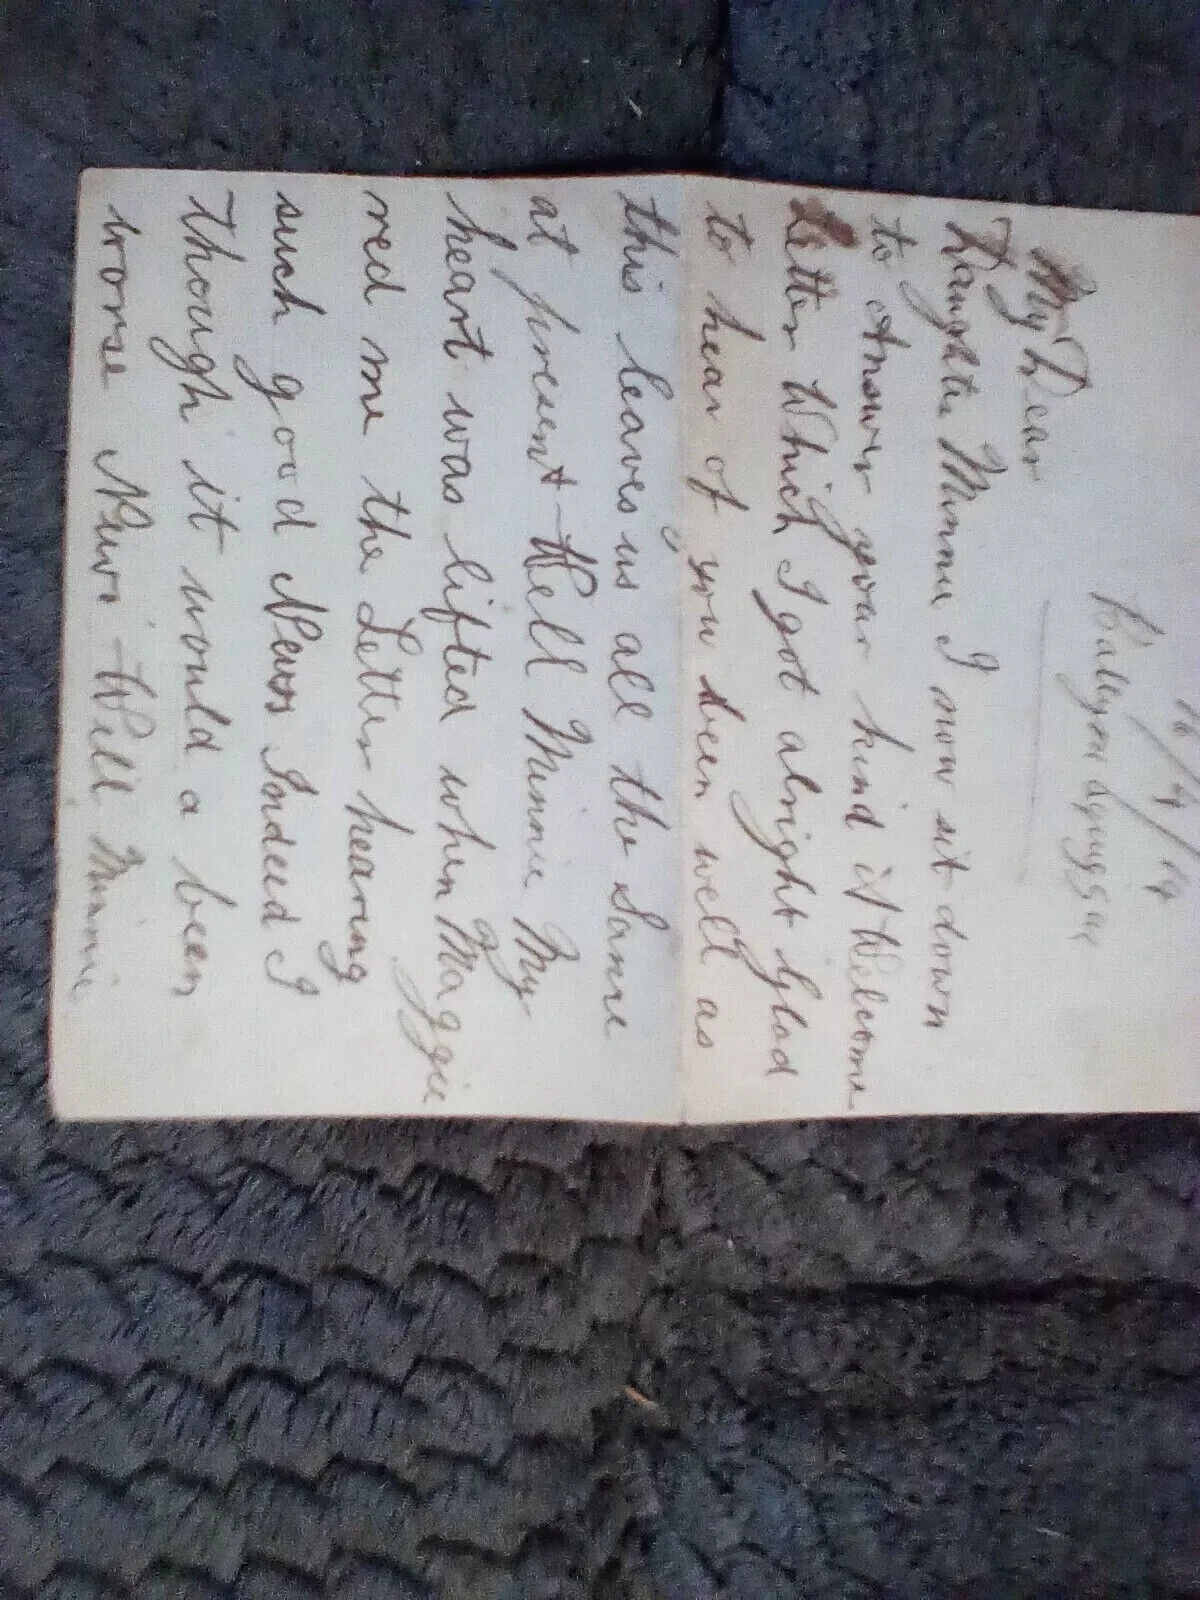 16/4/14
My Dear
Daughter Minnie I now sit down
to Answer your kind & Welcome
Letter Which I got alright Glad
to hear of you been well as
this leaves us all the Same
at present Well Minnie My
heart was lifted when Maggie
red me the Letter hearing
such good News Indeed I
Though it would a been
worse News Well Minnie